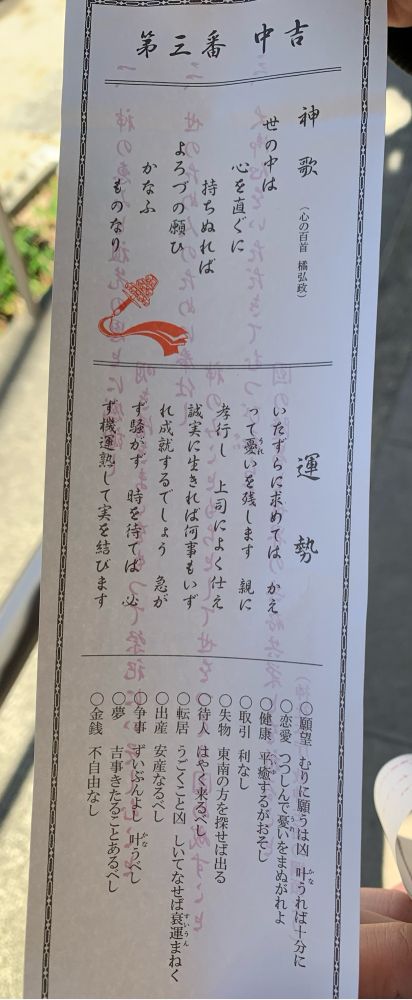 第三番 中吉
神歌 (心の百首 橘弘政)
世の中は
心を直ぐに
持ちぬれば
よろづの願ひ
かなふ
ものなり
運勢
いたずらに求めては かえ
って憂いを残します 親に
孝行し 上司によく仕え
誠実に生きれば何事もいず
れ成就するでしょう 急が
ず騒がず 時を待てば 必
ず機運熟して実を結びます
○願望 むりに願うは凶 叶うれば十分に
○恋愛 つつしんで憂いをまぬがれよ
○健康 平癒するがおそし
○取引 利なし
○失物 東南の方を探せば出る
○待人 はやく来るべし
○転居 うごくこと凶 しいてなせば衰運まねく
○出産 安産なるべし
○争事 ずいぶんよし 叶うべし
○夢 吉事きたることあるべし
○金銭 不自由なし